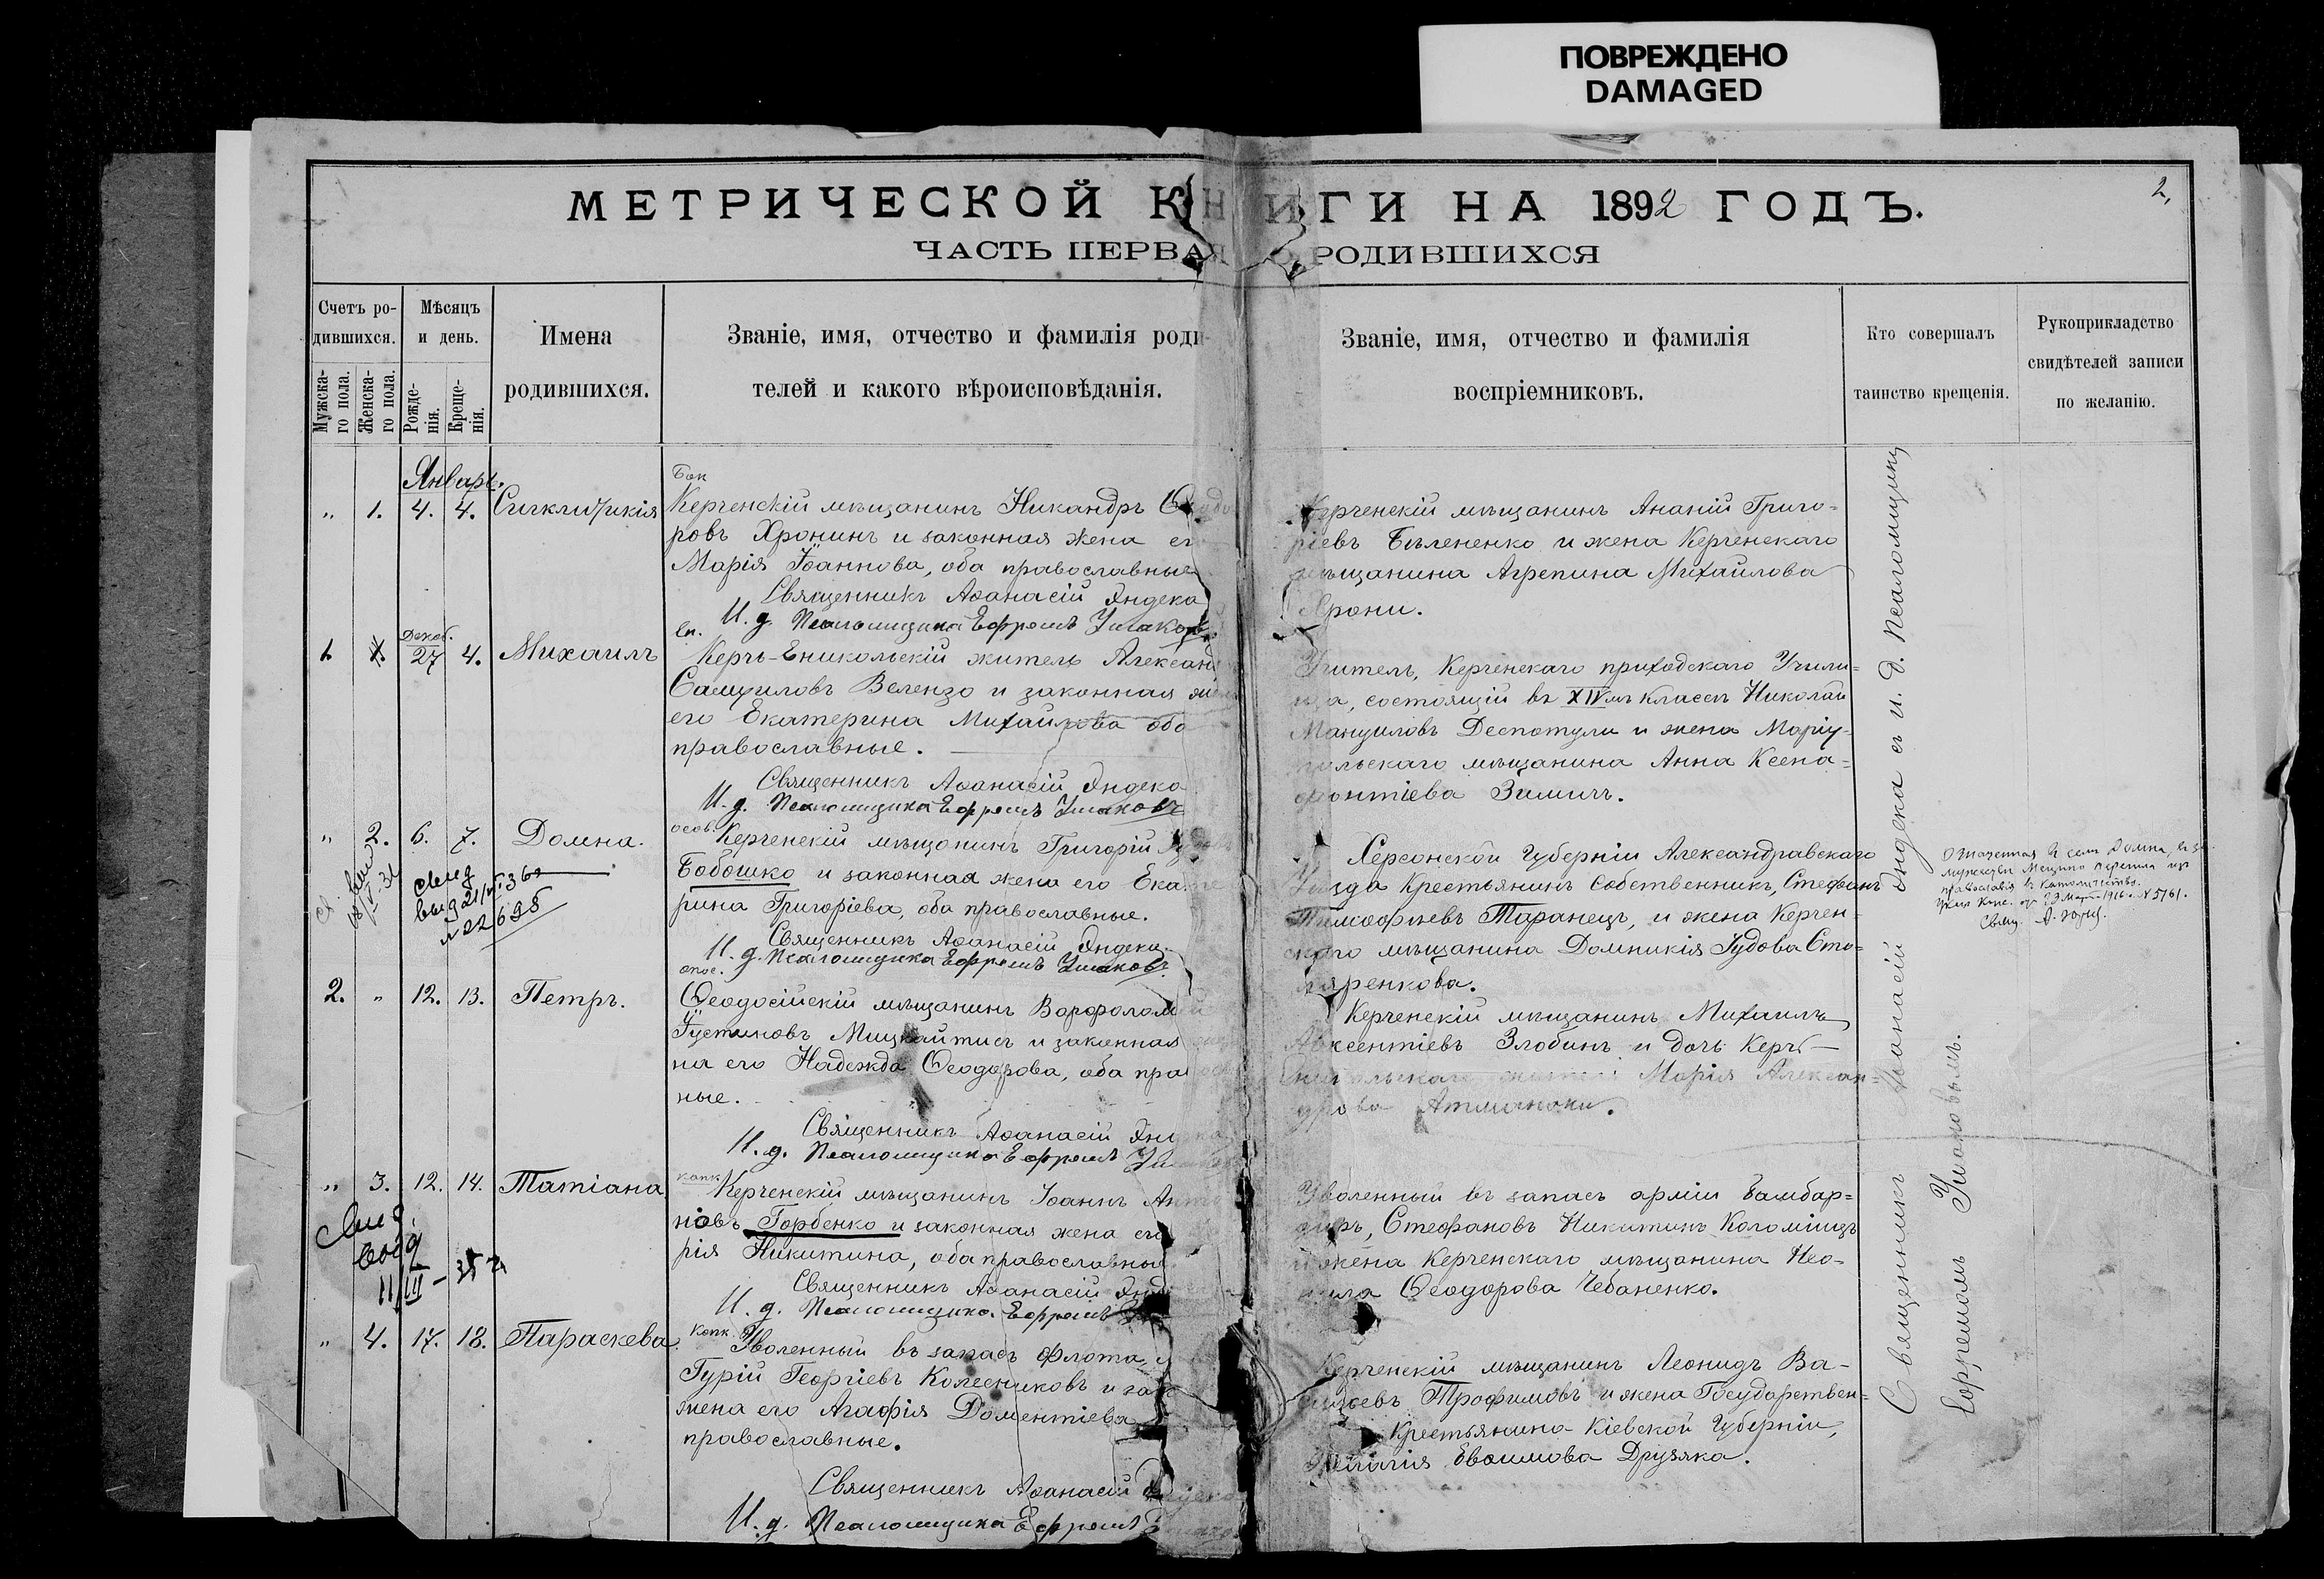 ПОВРЕЖДЕНО
DAMAGED
2,
МЕТРИЧЕСКОЙ КНИГИ НА 1892 ГОДЪ.
ЧАСТЬ ПЕРВАЯ О РОДИВШИХСЯ
Счетъ ро-
дившихся.
Мужска-
го пола.
Женска-
го пола.
Мѣсяцъ
и день.
Рожде-
нія.
Креще-
нія.
Имена
родившихся.
Званіе, имя, отчество и фамилія роди-
телей и какого вѣроисповѣданія.
Званіе, имя, отчество и фамилія
воспріемниковъ.
Кто совершалъ
таинство крещенія.
Рукоприкладство
свидѣтелей записи
по желанію.
Январь.
„ 1. 4. 4. Синклитикія
Керченскій мѣщанинъ Никандръ
ровъ Хронинъ и законная жена его
Марія Іоаннова, оба православные
Священникъ Аѳанасій Яндека
И. д. Псаломщика Ефремъ Ушаковъ
Керченскій мѣщанинъ Ананій Григо=
ріевъ Бѣлененко и жена Керченскаго
мѣщанина Агрепина Михайлова
Хрони.
1. Декаб. 27 4. Михаилъ
Керчь-Еникольскій житель Александръ
Самуиловъ Велензо и законная жена
его Екатерина Михайлова оба
православные.
Священникъ Аѳанасій Яндека
И. д. Псаломщика Ефремъ Ушаковъ
Учитель, Керченскаго приходскаго Учили=
ща, состоящій въ XIV мъ классѣ Николай
Мануиловъ Деспотули и жена Маріу-
польскаго мѣщанина Анна Ксено=
фонтіева Зимичъ.
„ 2. 6. 7. Домна.
осов.
Керченскій мѣщанинъ Григорій
Бобошко и законная жена его Екате
рина Григоріева, оба православные.
Священникъ Аѳанасій Яндека.
И. д. Псаломщика Ефремъ Ушаковъ
Херсонской Губерніи Александравскаго
Уѣзда Крестьянинъ Собственникъ, Стефанъ
Тимофѣевъ Таранецъ, и жена Керчен-
скаго мѣщанина Домникія Іудова Сто=
ляренкова.
выд 21/VI 36г
№ 22698
2. „ 12. 13. Петръ.
Ѳеодосійскій мѣщанинъ Варфоломей
Іустиновъ Мицкайтисъ и законная
на его Надежда Ѳеодорова, оба правос
ные.
Священникъ Аѳанасій Яндека
И. д. Псаломщика Ефремъ
Керченскій мѣщанинъ Михаилъ
Авксентіевъ Злобинъ и дочь Керчь-
Марія Алексан=
дрова
„ 3. 12. 14. Татіана
Керченскій мѣщанинъ Іоаннъ
новъ Горбенко и законная жена его
рія Никитина, оба православные
Священникъ Аѳанасій
И. д. Псаломщика Ефремъ
Уволенный въ запасъ арміи Бамбар=
диръ, Стефановъ Никитинъ Коломіицъ
и жена Керченскаго мѣщанина Нео-
нила Ѳеодорова Чебаненко.
Свид.
выд
11/III - 35 г
„ 4. 17. 18. Параскева.
Уволенный въ запасъ Флота
Гурій Георгіевъ Колесниковъ и зак
жена его Агафія Доментіева
православные.
Священникъ Аѳанасій
И. д. Псаломщика Ефремъ
Керченскій мѣщанинъ Леонидъ Ва-
сильевъ Трофимовъ и жена Государствен=
Крестьянина Кіевской Губерніи,
Евѳимова Друзяка.
Священникъ Аѳанасій Яндека съ и. д. Псаломщика
Ефремомъ Ушаковымъ.